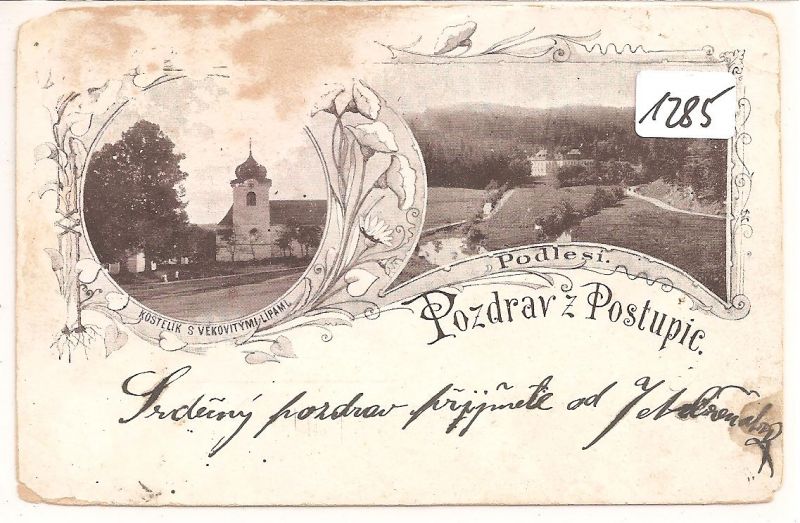 1285
KOSTELÍK S VĚKOVITÝMI LIPAMI.
Podlesí.
Pozdrav z Postupic.
Srdečný pozdrav přijměte od